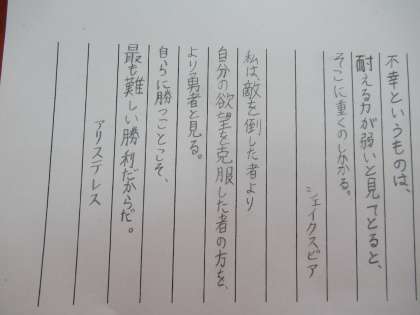 不幸というものは、
耐える力が弱いと見てとると、
そこに重くのしかかる。
シェイクスピア
私は、敵を倒した者より
自分の欲望を克服した者の方を、
より勇者と見る。
自らに勝つことこそ、
最も難しい勝利だからだ。
アリステレス